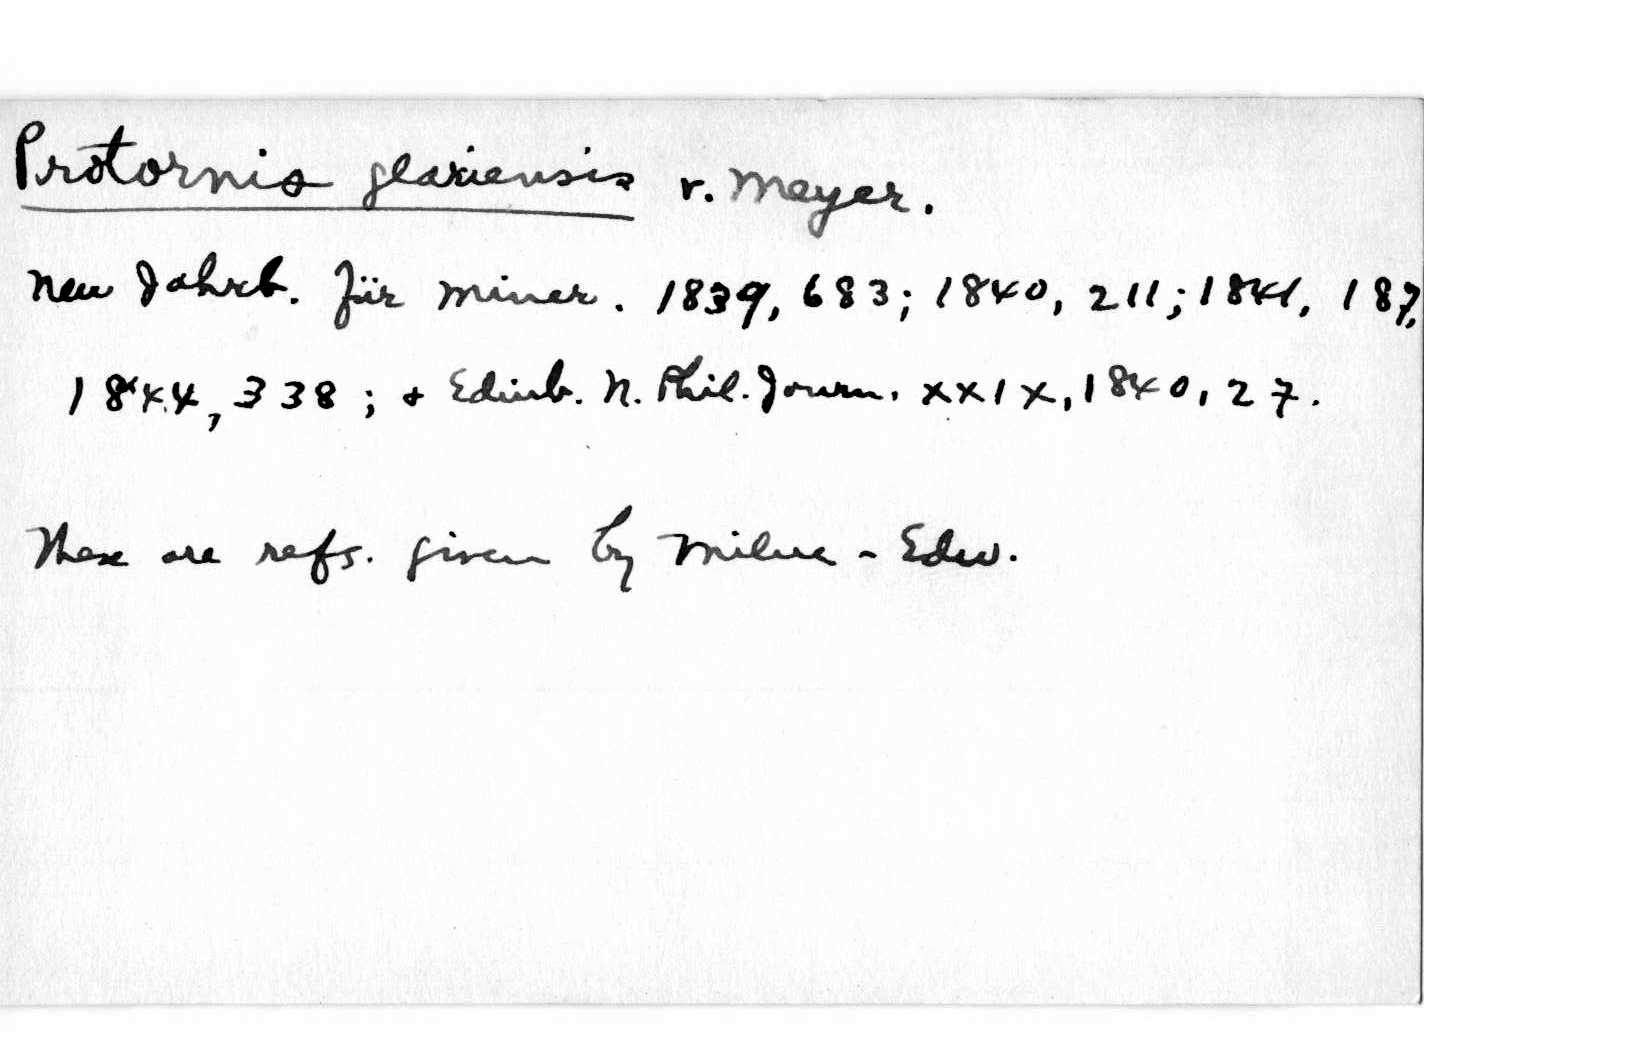 Protornis glariensis v. Meyer.
Neu Jahrb. für Miner. 1839, 683; 1840, 211; 1841, 187,
1844, 338; + Edinb. N. Phil. Journ. XXIX, 1840, 27.
These are refs. given by Milne-Edw.